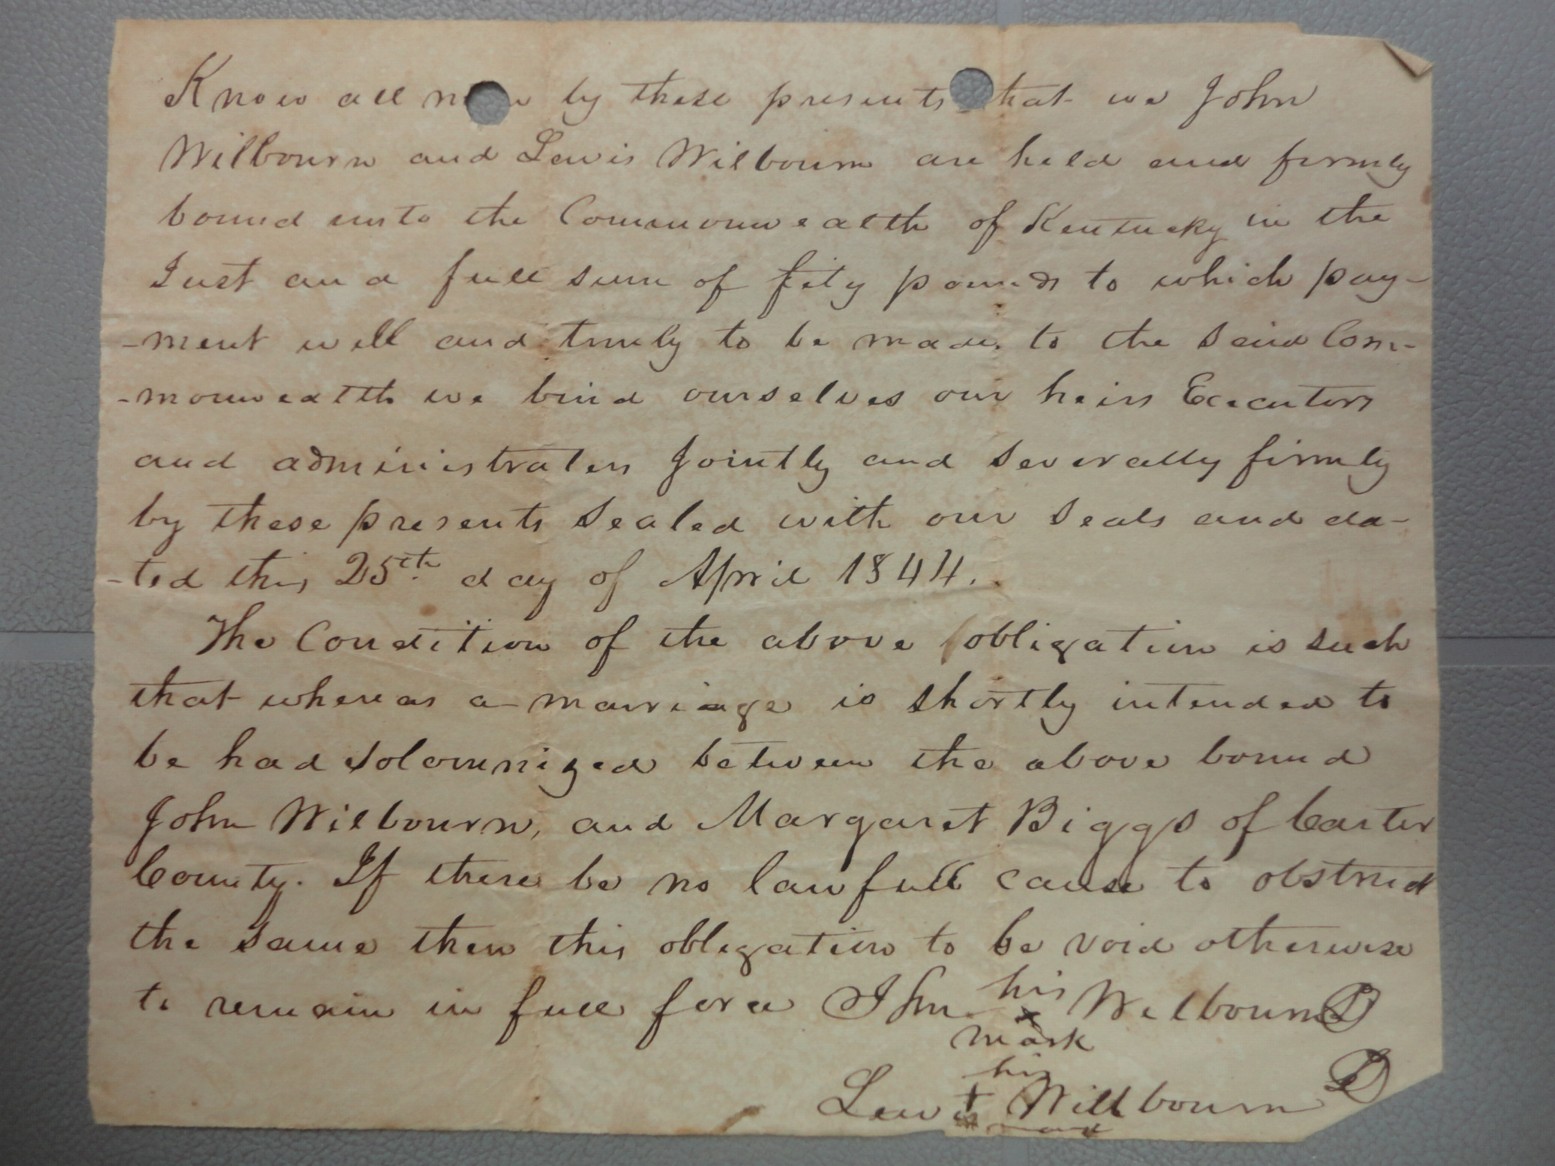 Know all men by these presents that we John
Wilbourn and Lewis Wilbourn are held and firmly
bound unto the Commonwealth of Kentucky in the
Just and full sum of fity pounds to which pay-
-ment well and truly to be made, to the said Com-
-monwealth we bind ourselves our heirs Executors
and administraters Jointly and severally firmly
by these presents sealed with our seals and da-
-ted this 25th day of April 1844.
The Condition of the above obligation is such
that whereas a marriage is shortly intended to
be had solomnized between the above bound
John Wilbourn, and Margaret Biggs of Carter
County. If there be no lawfull cause to obstruct
the same then this obligation to be void otherwise
to remain in full force John his x mark Wilbourn
Lewis his + mark Willbourn